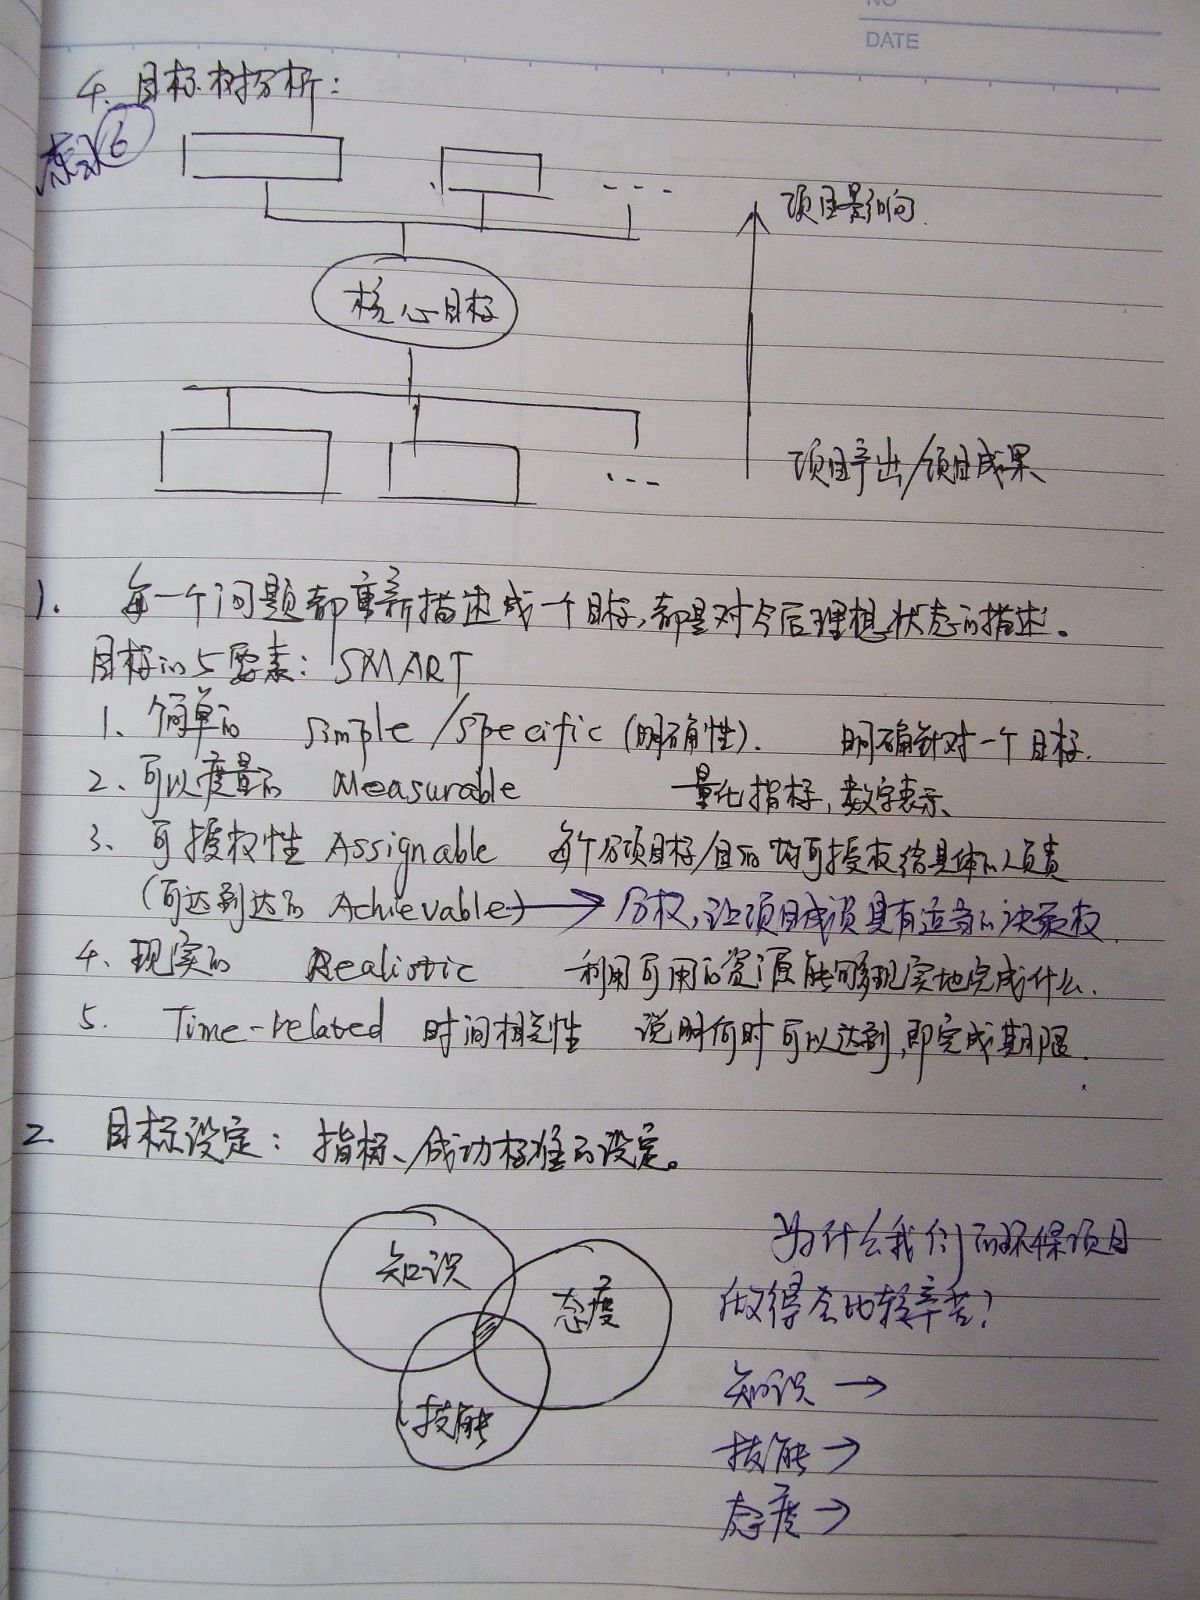 NO
DATE
4. 目标树分析:
⑥
项目影响
核心目标
项目产出/项目成果
1. 每一个问题都重新描述成一个目标,都是对今后理想状态的描述。
目标的5要素: SMART
1、简单的 Simple/Specific (明确性). 明确针对一个目标.
2、可以度量的 Measurable 量化指标,数字表示、
3、可授权性 Assignable 每个分项目标/目的均可授权给具体的人负责
(可达到达的 Achievable) → 分权,让项目成员具有适当的决策权.
4、现实的 Realistic 利用可用的资源能够现实地完成什么.
5. Time-related 时间相关性 说明何时可以达到,即完成期限.
2. 目标设定: 指标、成功标准的设定。
知识
态度
技能
为什么我们的环保项目
做得会比较辛苦?
知识 →
技能 →
态度 →